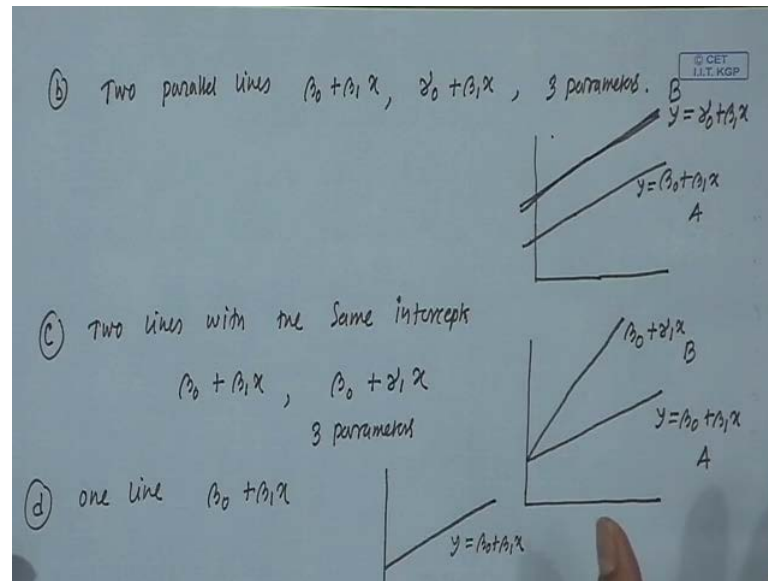 © CET
I.I.T. KGP
ⓑ Two parallel lines β₀ + β₁x, γ₀ + β₁x, 3 parameters.
B
y = γ₀ + β₁x
y = β₀ + β₁x
A
ⓒ Two lines with the Same intercept
β₀ + β₁x, β₀ + γ₁x
3 parameters
β₀ + γ₁x
B
y = β₀ + β₁x
A
ⓓ one line β₀ + β₁x
y = β₀ + β₁x